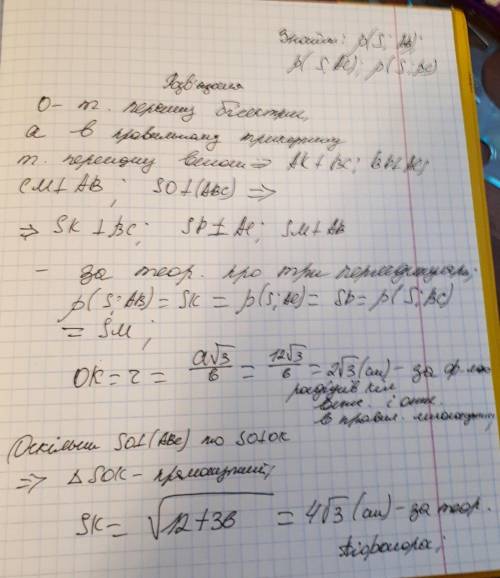 Знайти: ρ(S; AB);
ρ(S; AC); ρ(S; BC)
Розв'язання
O – т. перетину бісектрис,
а в правильному трикутнику
т. перетину висот => AK ⊥ BC; BP ⊥ AC;
CM ⊥ AB; SO ⊥ (ABC) =>
=> SK ⊥ BC; SP ⊥ AC; SM ⊥ AB
– за теор. про три перпендикуляри;
ρ(S; AB) = SK = ρ(S; AC) = SP = ρ(S; BC)
= SM;
OK = r = a√3/6 = 12√3/6 = 2√3 (см) – за ф.
радіусів кіл
впис. і опис.
в правил. многокутник
Оскільки SO ⊥ (ABC) то SO ⊥ OK
=> △ SOK – прямокутний;
SK = √12+36 = 4√3 (см) – за теор.
Піфагора;